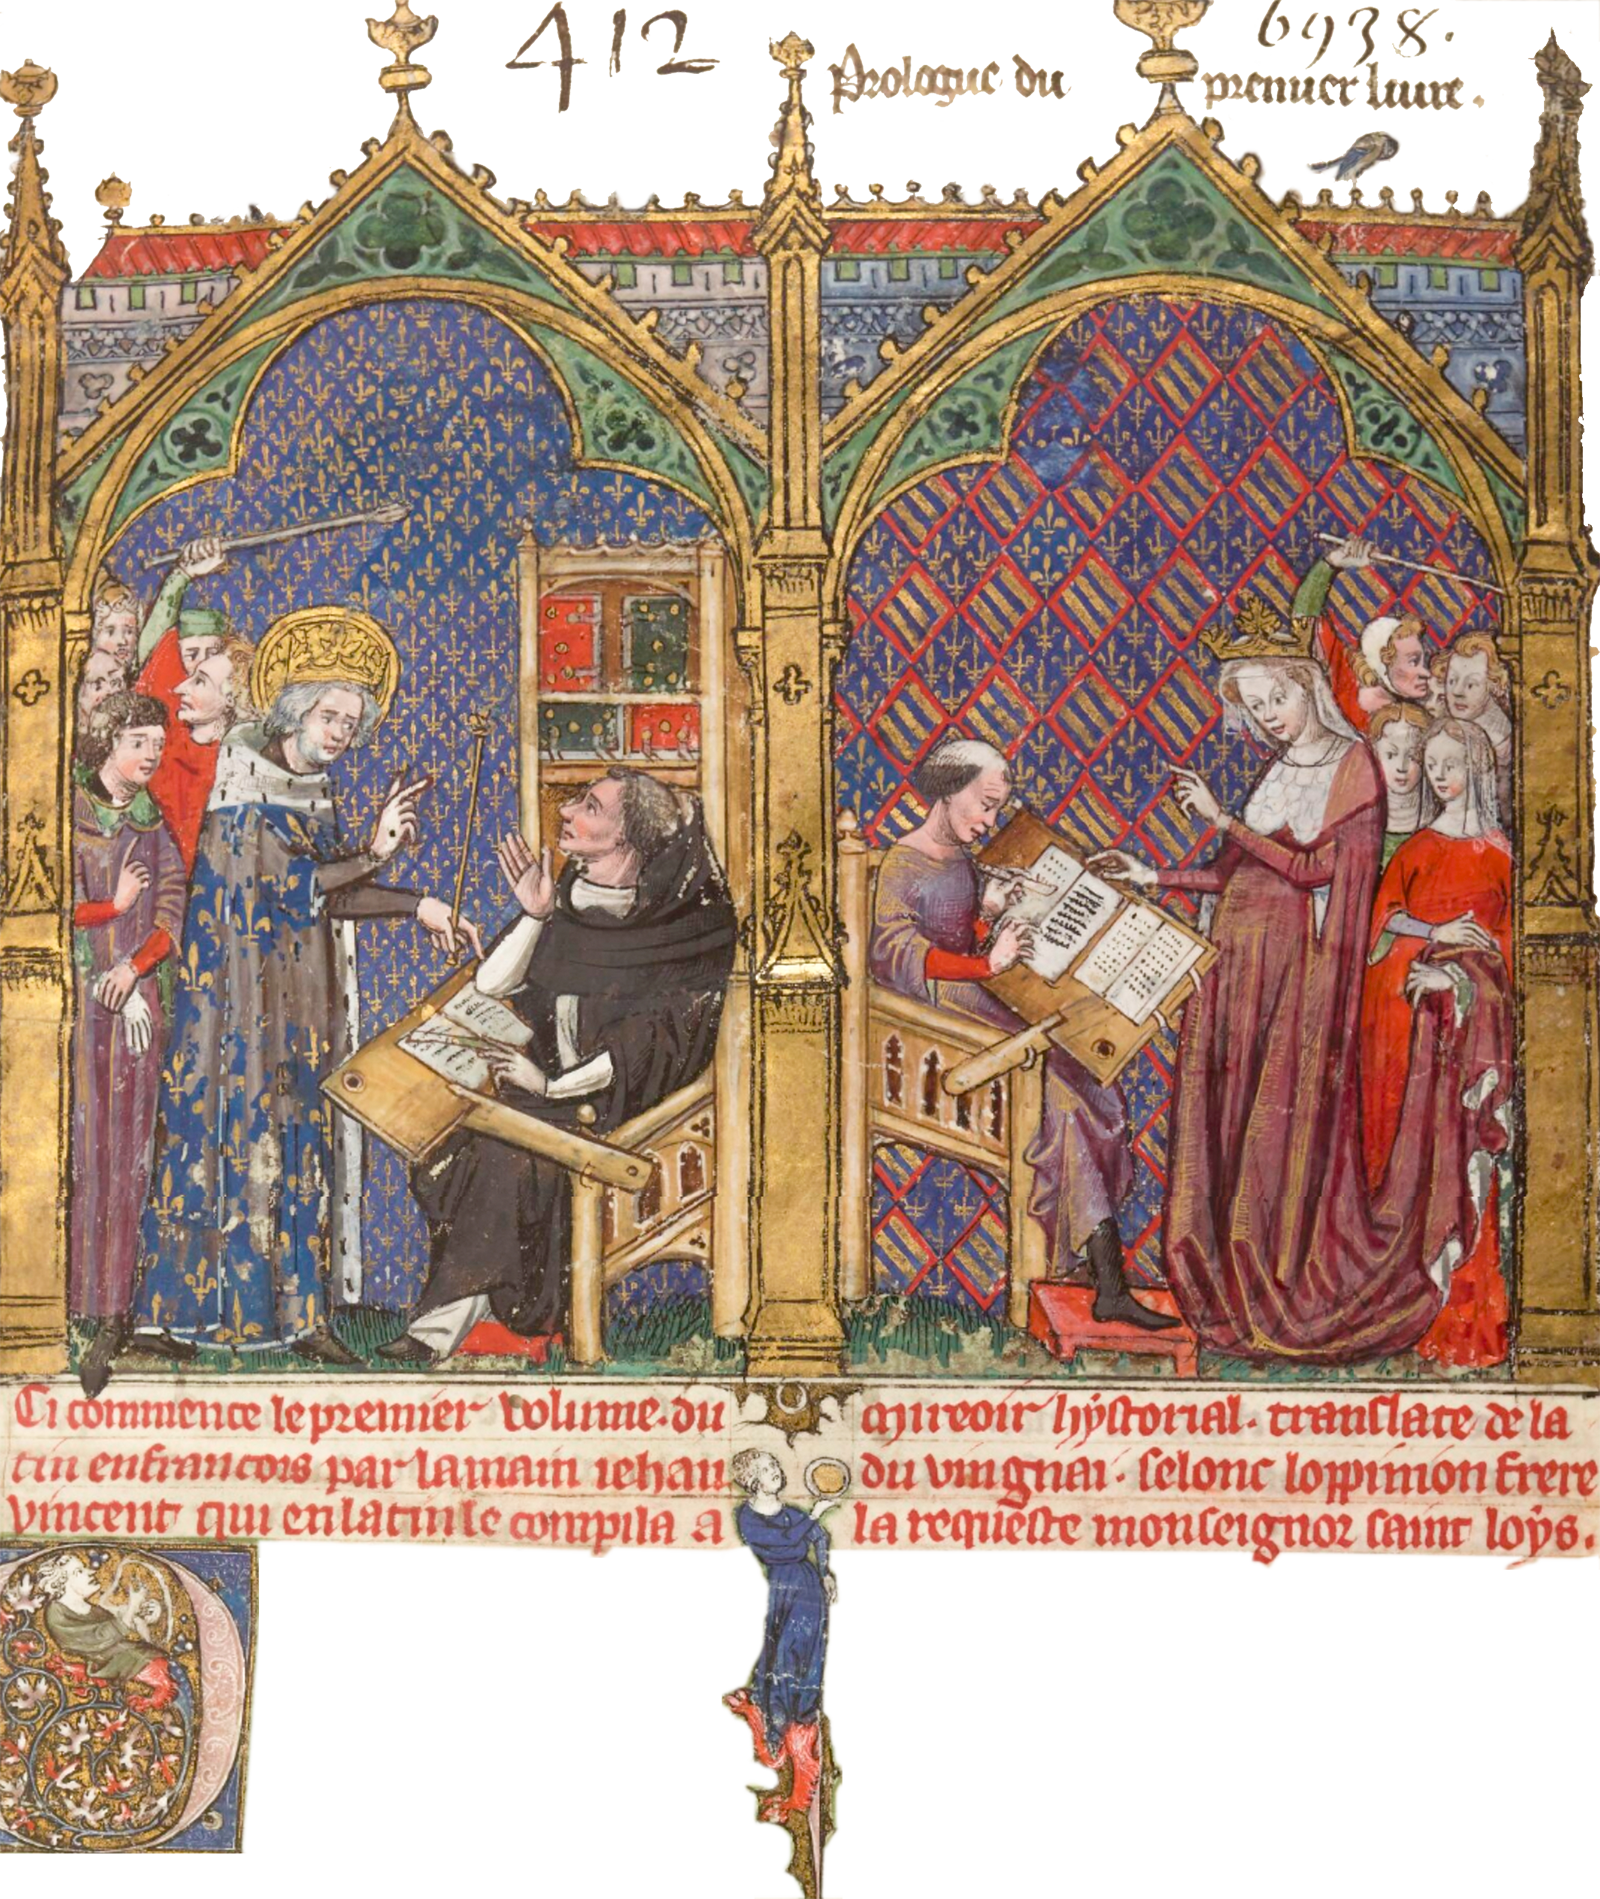 412
6938.
Prologue du premier liure.
Ci commence le premier volume. du mireoir hystorial. translate de la
tin en francois par la main iehan du vingnai. selonc loppinion frere
vincent qui en latin le compila a la requeste monseignor saint loys.